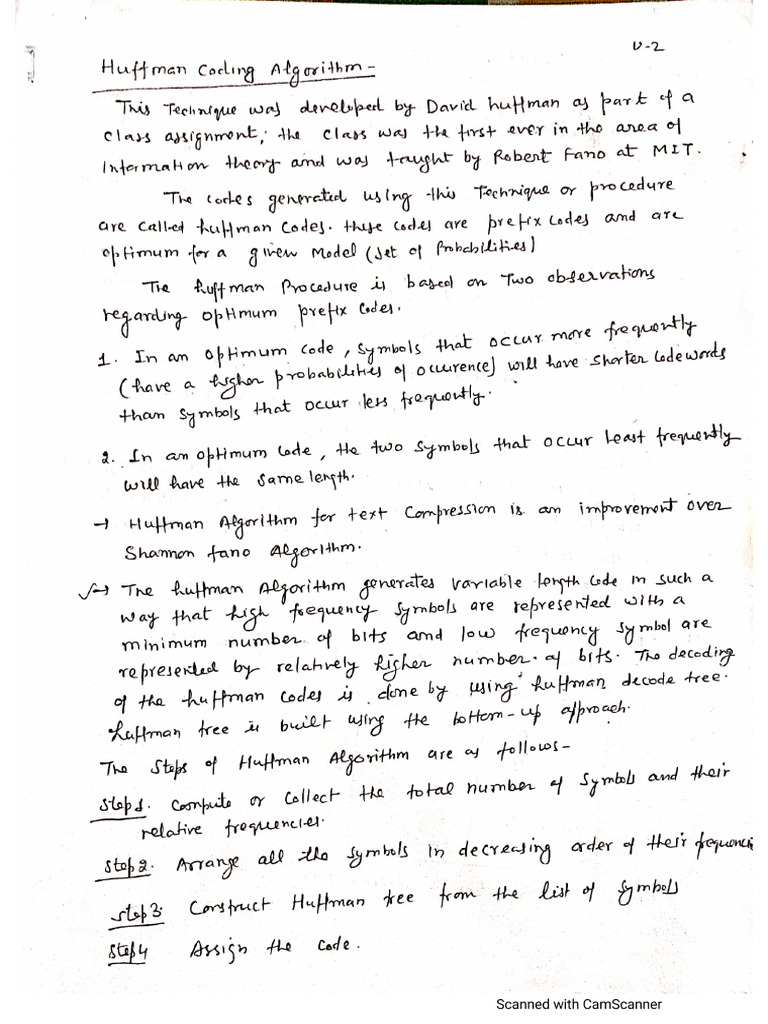 U-2
Huffman Coding Algorithm -
This Technique was developed by David huffman as part of a
class assignment; the class was the first ever in the area of
Information theory and was taught by Robert Fano at MIT.
The codes generated using this Technique or procedure
are called huffman codes. these codes are prefix codes and are
optimum for a given Model (set of Probabilities)
The huffman Procedure is based on Two observations
regarding optimum prefix codes.
1. In an optimum code, symbols that occur more frequently
(have a higher probabilities of occurrence) will have shorter codewords
than symbols that occur less frequently.
2. In an optimum code, the two symbols that occur least frequently
will have the same length.
→ Huffman Algorithm for text compression is an improvement over
Shannon fano Algorithm.
→ The huffman Algorithm generates variable length code in such a
way that high frequency symbols are represented with a
minimum number of bits and low frequency symbol are
represented by relatively higher number of bits. The decoding
of the huffman codes is done by using huffman decode tree.
huffman tree is built using the bottom-up approach.
The Steps of Huffman Algorithm are as follows -
Step 1. Compute or collect the total number of symbols and their
relative frequencies.
Step 2. Arrange all the symbols in decreasing order of their
Step 3: Construct Huffman tree from the list of symbols
Step 4 Assign the code.
Scanned with CamScanner